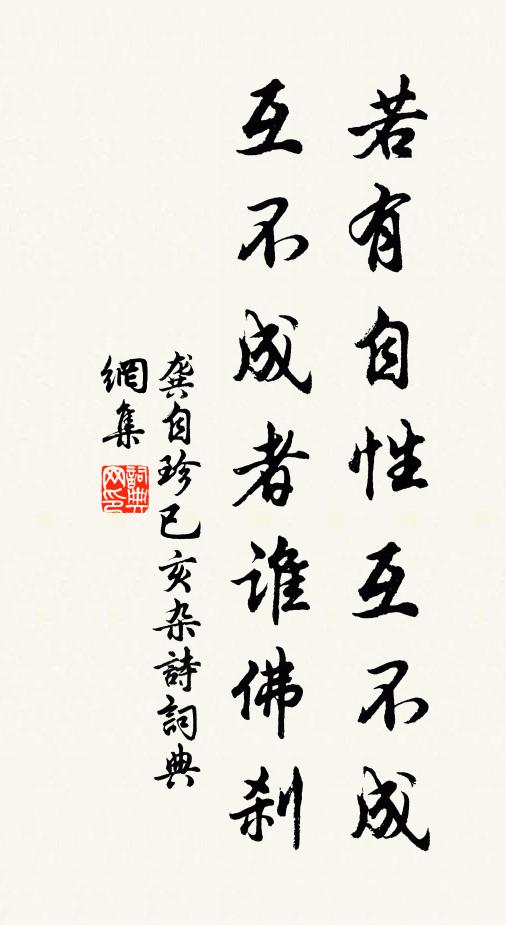 若有自性互不成
互不成者誰佛刹
龚自珍己亥杂詩詞典
網集
詞典網印